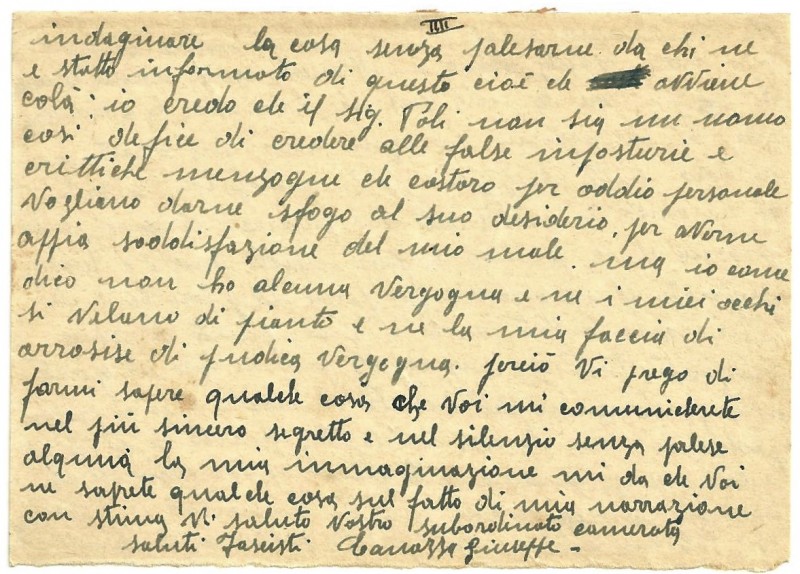 IIII
indaginare la cosa senza palesarne da chi ne
e statto informato di questo cioè che avviene
colà; io credo che il sig. Poli non sia un uomo
così defice di credere alle false inposturie e
crittiche menzogne che costoro per oddio personale
Vogliano darne sfogo al suo desiderio, per averne
appia soddisfazione del mio male. ma io come
dico non ho alcuna Vergogna e ne i miei occhi
si Velano di pianto e ne la mia faccia di
arrosise di pudica Vergogna. perciò Vi prego di
farmi sapere qualche cosa che Voi mi comunicherete
nel più sincero segretto e nel silenzio senza palese
alquna la mia immaginazione mi da che Voi
ne saprete qualche cosa sul fatto di mia narrazione
con stima Vi saluto Vostro subordinato camerata
saluti Fascisti Canazza Giuseppe -